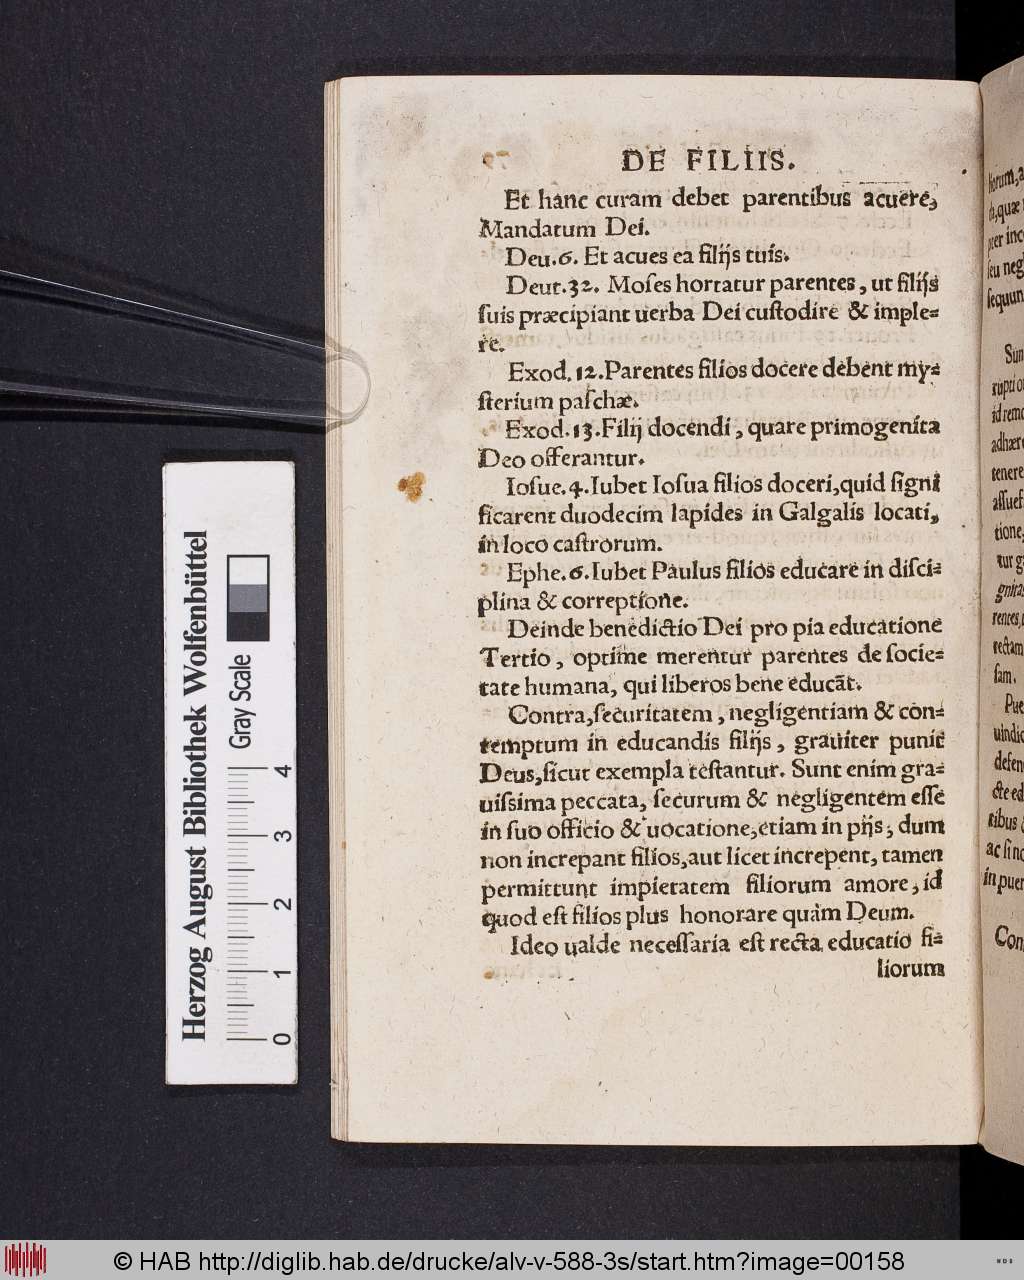 DE FILIIS.
Et hanc curam debet parentibus acuere,
Mandatum Dei.
Deu.6. Et acues ea filijs tuis.
Deut.32. Moſes hortatur parentes, ut filijs
ſuis præcipiant uerba Dei cuſtodire & imple-
re.
Exod. 12. Parentes filios docere debent my-
ſterium paſchæ.
Exod.13. Filij docendi, quare primogenita
Deo offerantur.
Ioſue.4. Iubet Ioſua filios doceri, quid ſigni
ficarent duodecim lapides in Galgalis locati,
in loco caſtrorum.
Ephe.6. Iubet Paulus filios educare in diſci-
plina & correptione.
Deinde benedictio Dei pro pia educatione
Tertio, optime merentur parentes de ſocie-
tate humana, qui liberos bene educāt.
Contra, ſecuritatem, negligentiam & con-
temptum in educandis filijs, grauiter punit
Deus, ſicut exempla teſtantur. Sunt enim gra-
uiſsima peccata, ſecurum & negligentem eſſe
in ſuo officio & uocatione, etiam in pijs, dum
non increpant filios, aut licet increpent, tamen
permittunt impietatem filiorum amore, id
quod eſt filios plus honorare quàm Deum.
Ideo ualde neceſſaria eſt recta educatio fi-
liorum
Sun
adhære
tenere
aſſueſ
tione,
rectam
ſam.
Pue
uindic
defen
ac ſi no
in puer
Con
Herzog August Bibliothek Wolfenbüttel
Gray Scale
0 1 2 3 4
© HAB http://diglib.hab.de/drucke/alv-v-588-3s/start.htm?image=00158